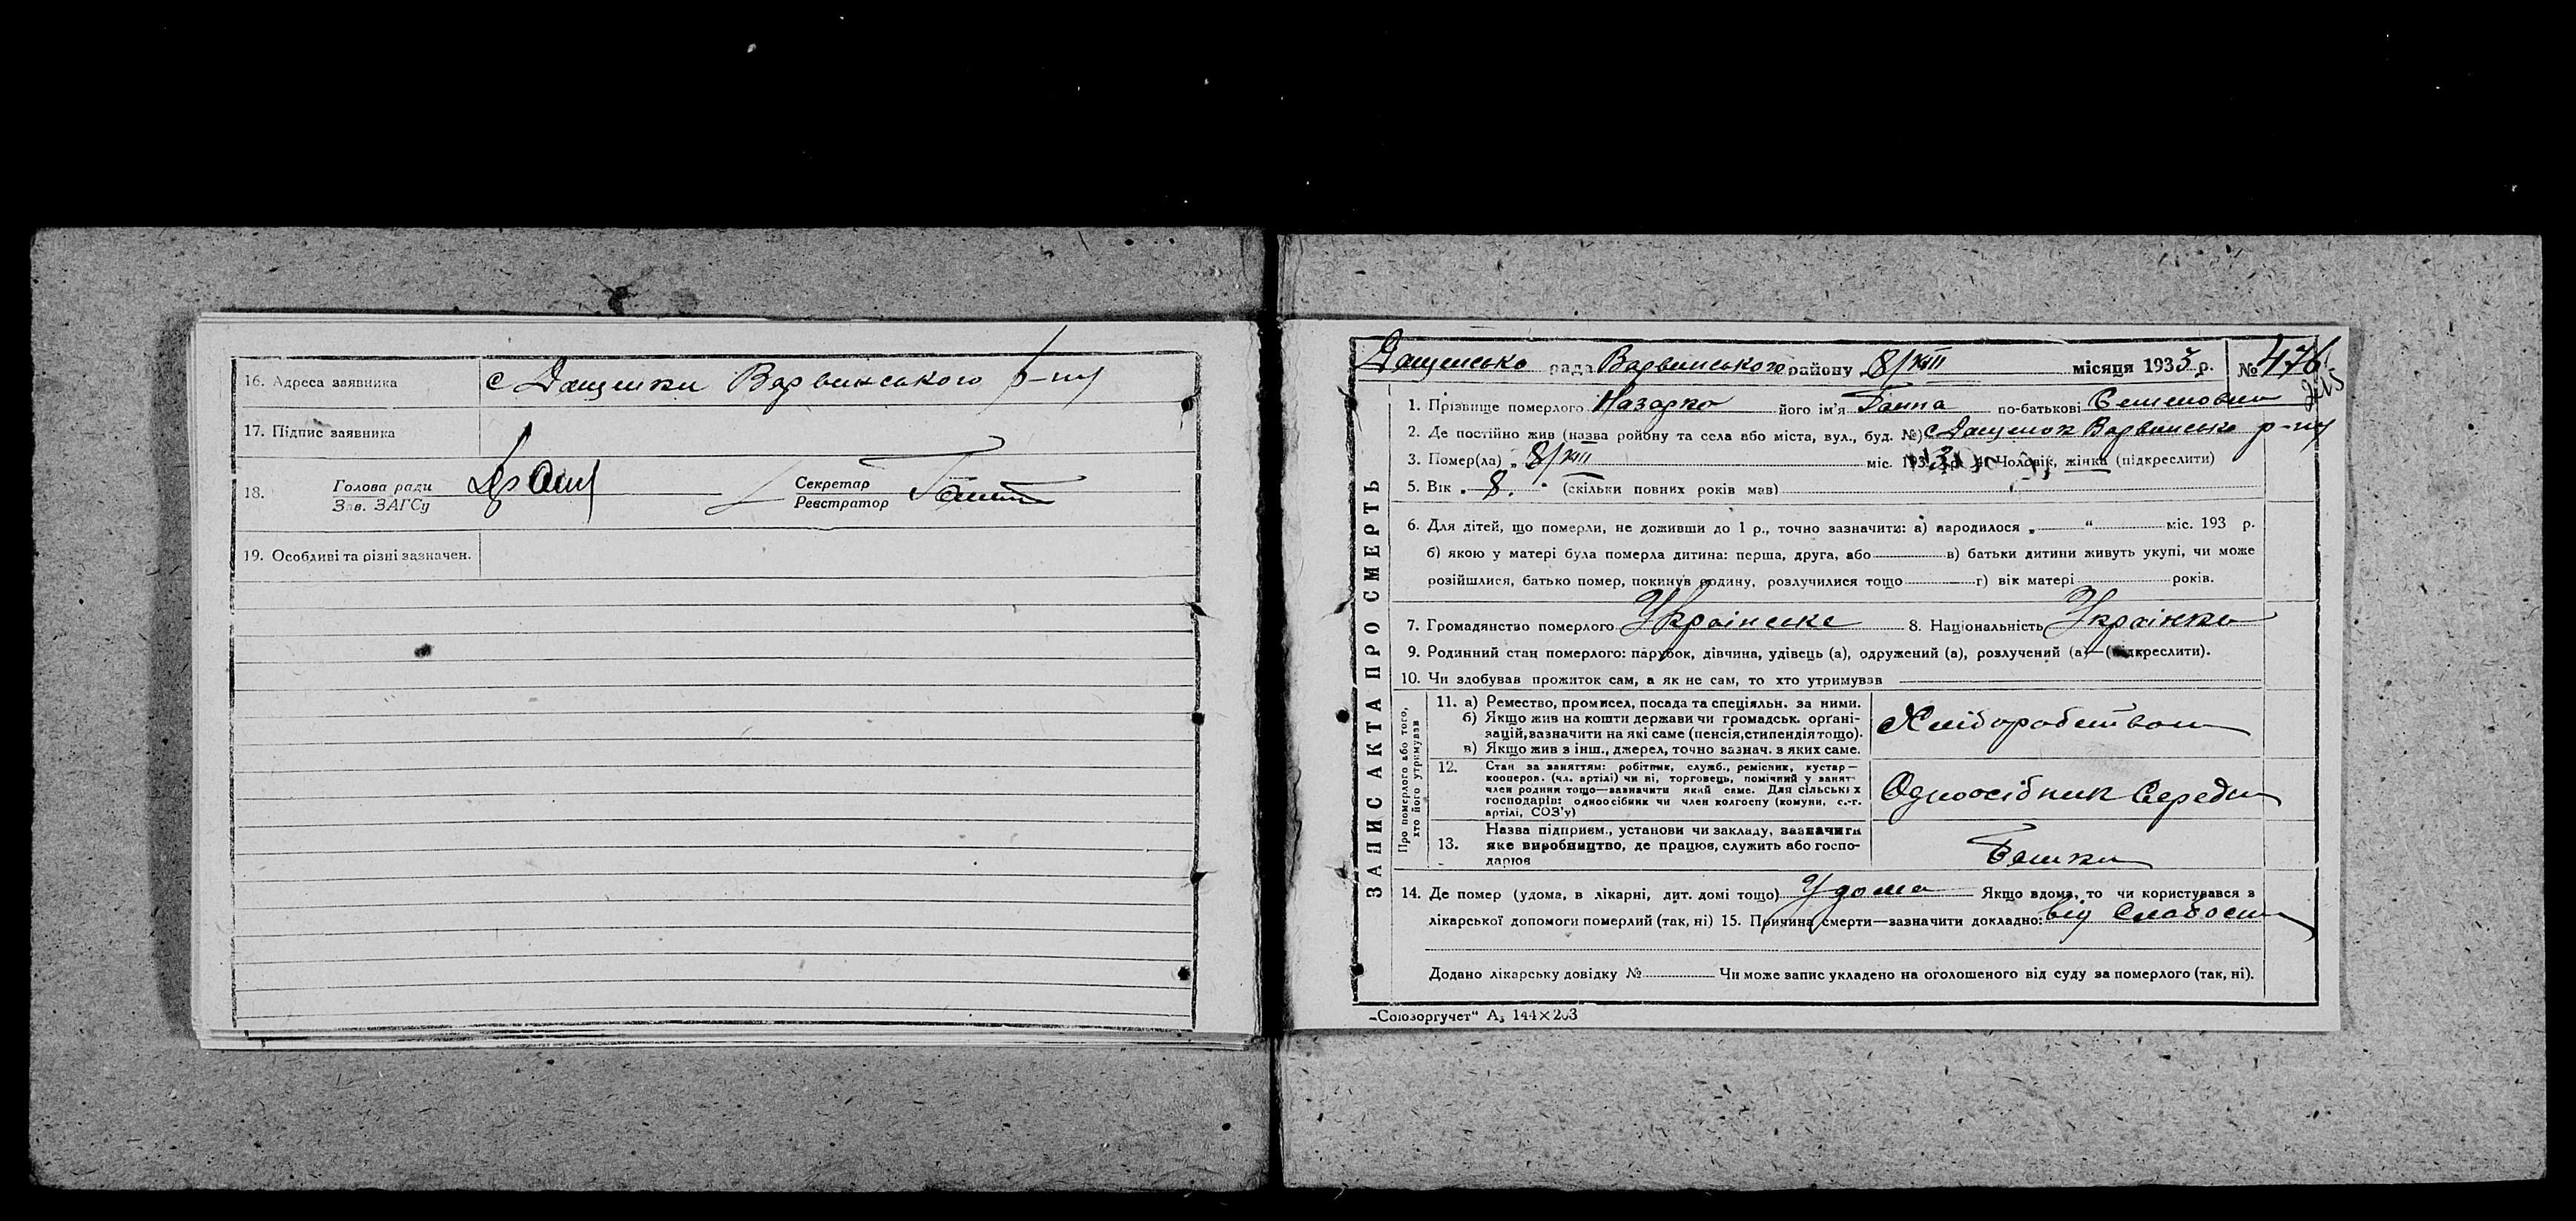 16. Адреса заявника с Дащенки Варвинського р-ну
17. Підпис заявника
18. Голова ради
Зав. ЗАГСу
Секретар
Реєстратор
19. Особливі та різні зазначен.
ЗАПИС АКТА ПРО СМЕРТЬ
Дащенсько рада Варвинського району 8/VIII місяця 1933 р. № 476
1. Прізвище померлого Назарко його ім'я Ганна по-батькові Семеновна
2. Де постійно жив (назва ройону та села або міста, вул., буд. №) с Дащенок Варвинсько р-ну
3. Помер(ла) „ 8/VIII міс. 193 Чоловік, жінка (підкреслити)
5. Вік „ 8. “ (скільки повних років мав)
6. Для дітей, що померли, не доживши до 1 р., точно зазначити: а) народилося „ “ міс. 193 р.
б) якою у матері була померла дитина: перша, друга, або в) батьки дитини живуть укупі, чи може
розійшлися, батько помер, покинув родину, розлучилися тощо г) вік матері років.
7. Громадянство померлого Українське 8. Національність Українка
9. Родинний стан померлого: парубок, дівчина, удівець (а), одружений (а), розлучений (а)—(підкреслити).
10. Чи здобував прожиток сам, а як не сам, то хто утримував
Про померлого або того, хто його утримував
11. а) Ремество, промисел, посада та спеціяльн. за ними.
б) Якщо жив на кошти держави чи громадськ. орґані-
зацій, вазначити на які саме (пенсія, стипендія тощо).
в) Якщо жив з інш., джерел, точно зазнач. з яких саме.
Хліборобством
12. Стан за заняттям: робітник, служб., ремісник, кустар—
кооперов. (чл. артілі) чи ні, торговець, помічний у занят-
член родини тощо—зазначити який саме. Для сільських
господарів: одноосібник чи член колгоспу (комуни, с.-г.
артілі, СОЗ'у)
Одноосібник Середн
13. Назва підприєм., установи чи закладу, зазначити
яке виробництво, де працює, служить або госпо-
дарює
14. Де помер (удома, в лікарні, дит. домі тощо) Удома Якщо вдома, то чи користувався з
лікарської допомоги померлий (так, ні) 15. Причина смерти—зазначити докладно: від Слабости
Додано лікарську довідку № Чи може запис укладено на оголошеного від суду за померлого (так, ні).
„Союзоргучет“ А₅ 144×203